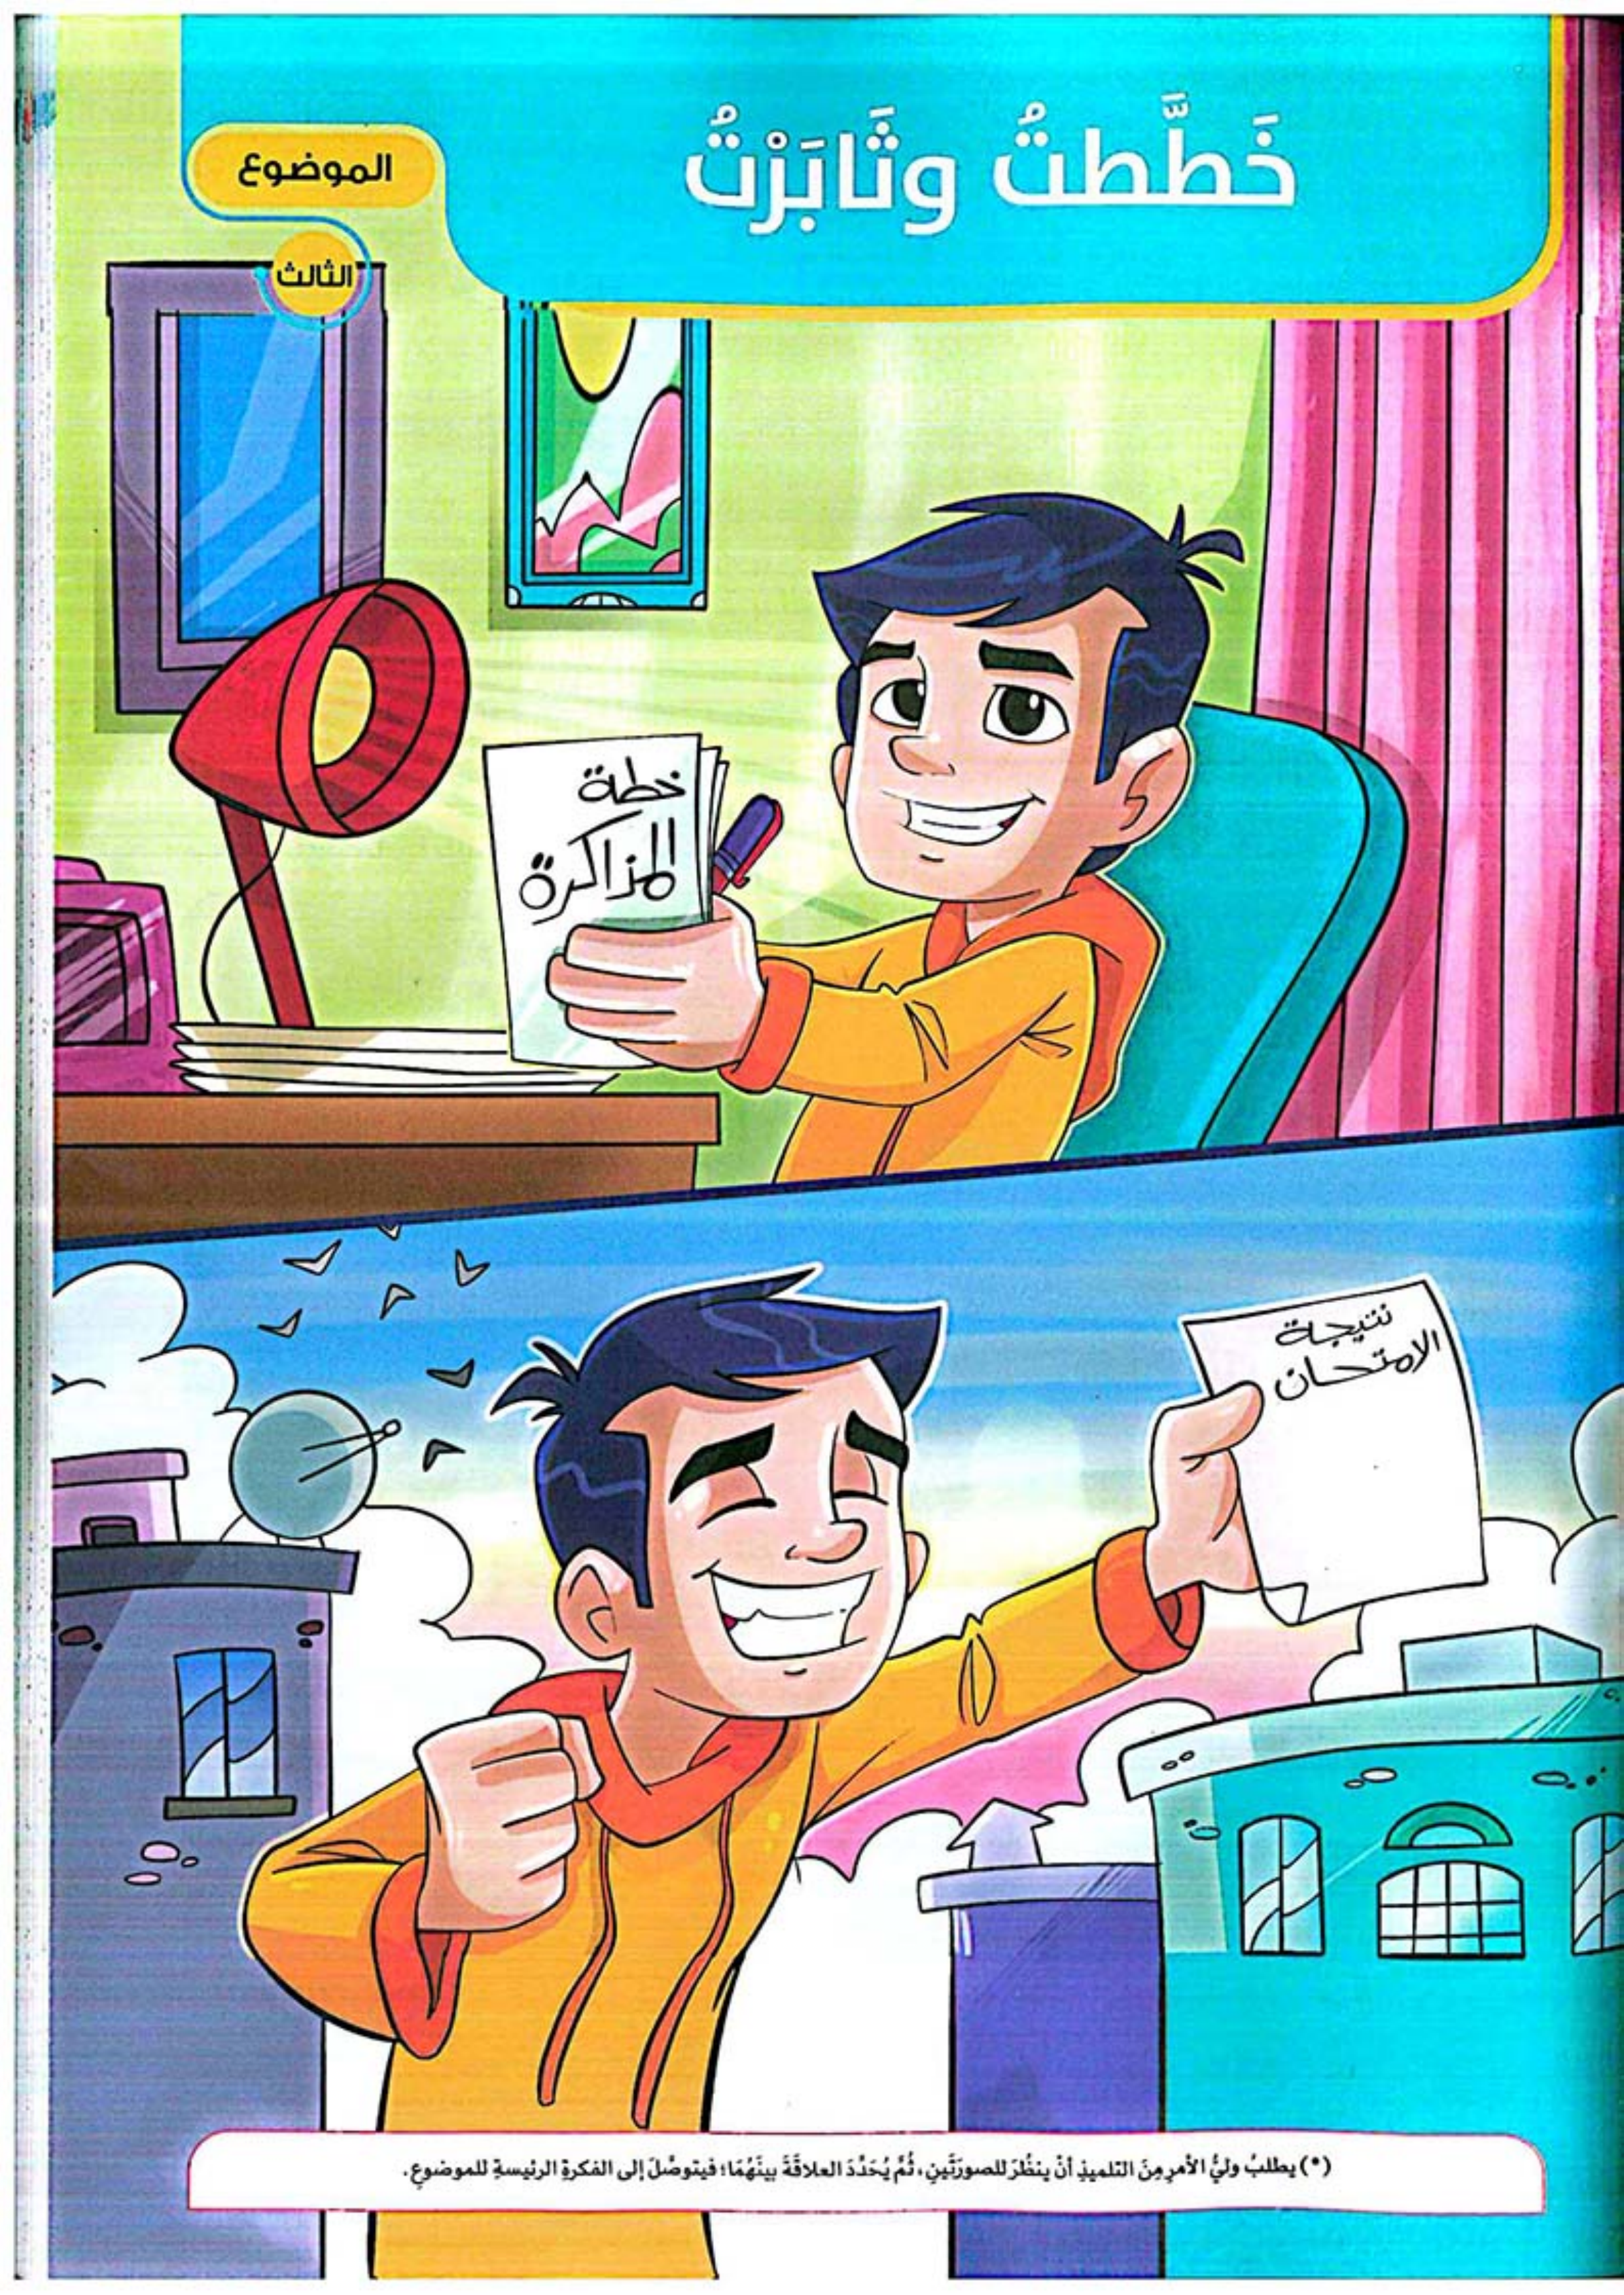 خَطَّطتُ وثَابَرْتُ
الموضوع
الثالث
خطة
المزاكرة
نتيجة
الامتحان
(*) يطلبُ وليُّ الأمرِ مِنَ التلميذِ أنْ ينظُرَ للصورَتَينِ، ثُمَّ يُحَدِّدَ العلاقَةَ بينَهُمَا؛ فيتوصَّلَ إلى الفكرةِ الرئيسةِ للموضوعِ.